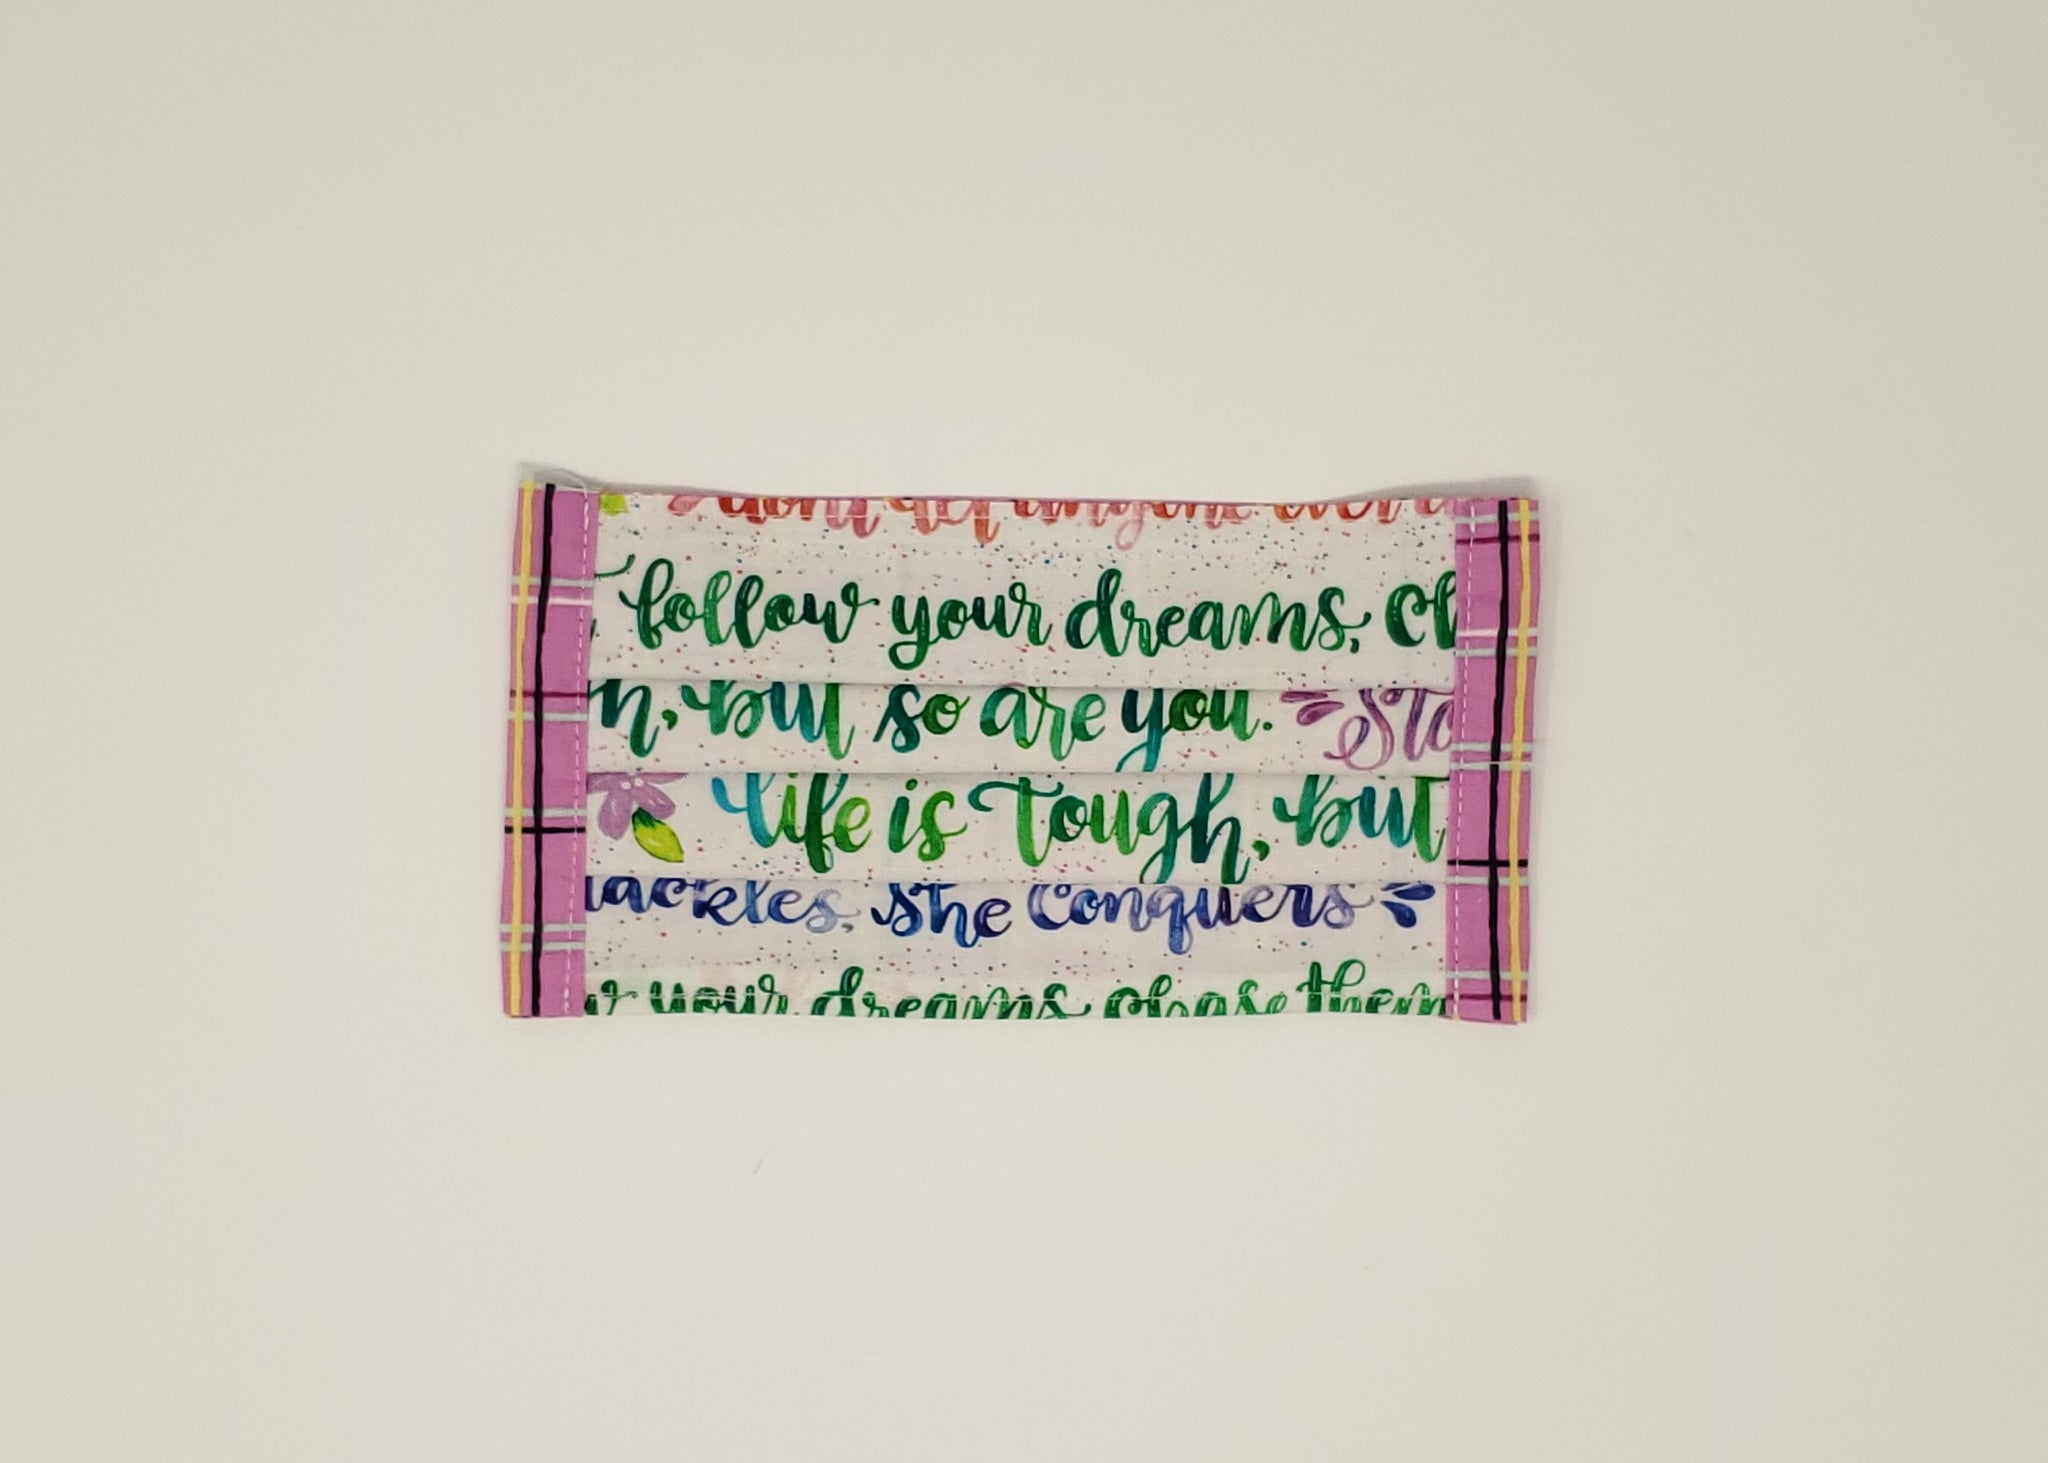 don't let anyone ever
follow your dreams, ch
n, but so are you. Sto
life is tough, but
ackles, she conquers
your dreams chase them